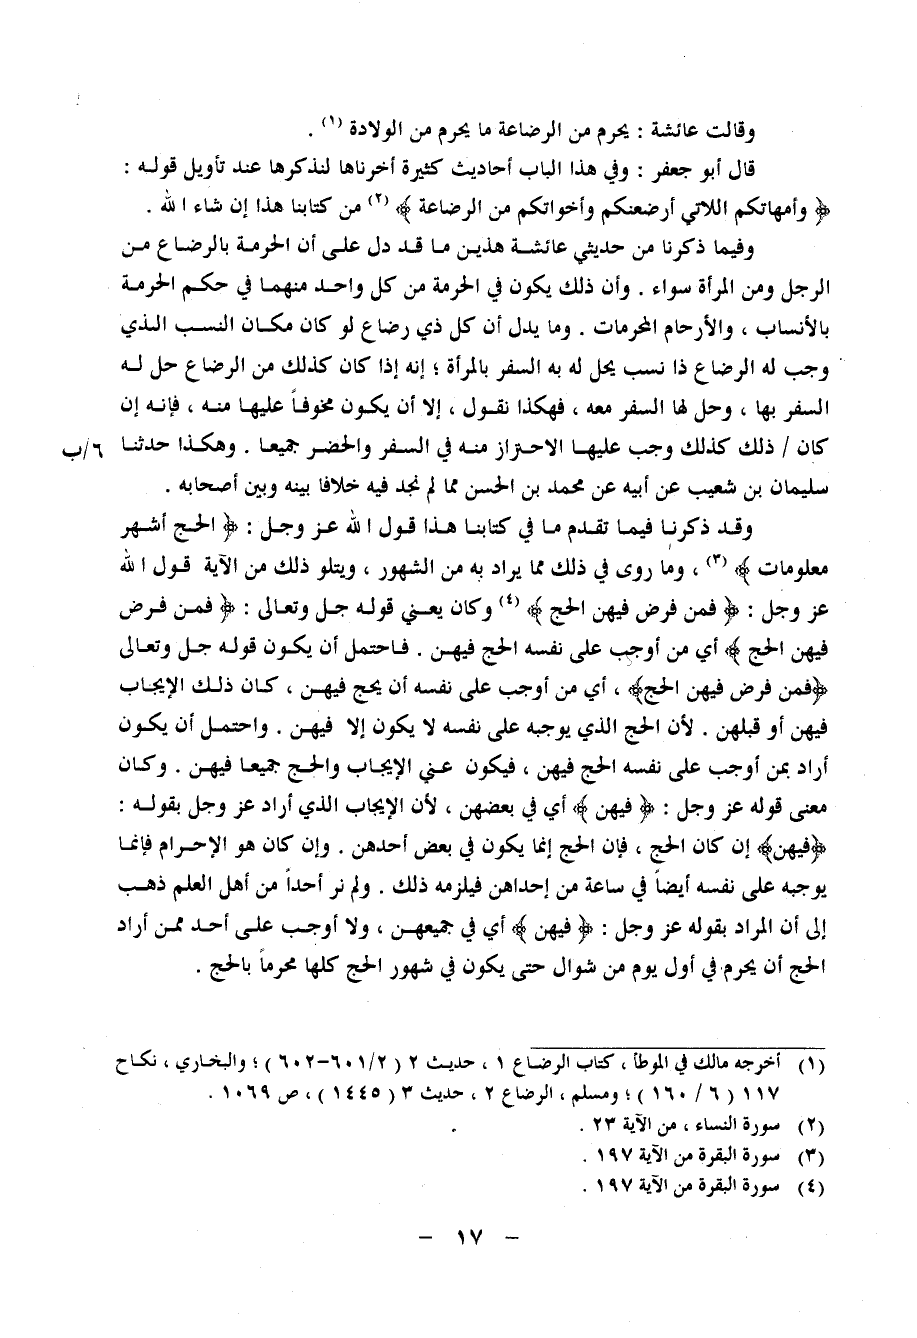 وقالت عائشة : يحرم من الرضاعة ما يحرم من الولادة (١) .
قال أبو جعفر : وفي هذا الباب أحاديث كثيرة أخرناها لنذكرها عند تأويل قوله :
﴿ وأمهاتكم اللاتي أرضعنكم وأخواتكم من الرضاعة ﴾ (٢) من كتابنا هذا إن شاء الله .
وفيما ذكرنا من حديثي عائشة هذين ما قد دل على أن الحرمة بالرضاع من
الرجل ومن المرأة سواء . وأن ذلك يكون في الحرمة من كل واحد منهما في حكم الحرمة
بالأنساب ، والأرحام المحرمات . وما يدل أن كل ذي رضاع لو كان مكان النسب الذي
وجب له الرضاع ذا نسب يحل له به السفر بالمرأة ؛ إنه إذا كان كذلك من الرضاع حل له
السفر بها ، وحل لها السفر معه ، فهكذا نقول ، إلا أن يكون مخوفاً عليها منه ، فإنه إن
كان / ذلك كذلك وجب عليها الاحتراز منه في السفر والحضر جميعا . وهكذا حدثنا ٦/ب
سليمان بن شعيب عن أبيه عن محمد بن الحسن مما لم نجد فيه خلافا بينه وبين أصحابه .
وقد ذكرنا فيما تقدم ما في كتابنا هذا قول الله عز وجل : ﴿ الحج أشهر
معلومات ﴾ (٣) ، وما روى في ذلك مما يراد به من الشهور ، ويتلو ذلك من الآية قول الله
عز وجل : ﴿ فمن فرض فيهن الحج ﴾ (٤) وكان يعني قوله جل وتعالى : ﴿ فمن فرض
فيهن الحج ﴾ أي من أوجب على نفسه الحج فيهن . فاحتمل أن يكون قوله جل وتعالى
﴿فمن فرض فيهن الحج﴾ ، أي من أوجب على نفسه أن يحج فيهن ، كان ذلك الإيجاب
فيهن أو قبلهن . لأن الحج الذي يوجبه على نفسه لا يكون إلا فيهن . واحتمل أن يكون
أراد بمن أوجب على نفسه الحج فيهن ، فيكون عني الإيجاب والحج جميعا فيهن . وكان
معنى قوله عز وجل : ﴿ فيهن ﴾ أي في بعضهن ، لأن الإيجاب الذي أراد عز وجل بقوله :
﴿فيهن﴾ إن كان الحج ، فإن الحج إنما يكون في بعض أحدهن . وإن كان هو الإحرام فإنما
يوجبه على نفسه أيضاً في ساعة من إحداهن فيلزمه ذلك . ولم نر أحداً من أهل العلم ذهب
إلى أن المراد بقوله عز وجل : ﴿ فيهن ﴾ أي في جميعهن ، ولا أوجب على أحد ممن أراد
الحج أن يحرم في أول يوم من شوال حتى يكون في شهور الحج كلها محرماً بالحج .
(١) أخرجه مالك في الموطأ ، كتاب الرضاع ١ ، حديث ٢ ( ٦٠١/٢-٦٠٢ ) ؛ والبخاري ، نكاح
١١٧ ( ٦ / ١٦٠ ) ؛ ومسلم ، الرضاع ٢ ، حديث ٣ ( ١٤٤٥ ) ، ص ١٠٦٩ .
(٢) سورة النساء ، من الآية ٢٣ .
(٣) سورة البقرة من الآية ١٩٧ .
(٤) سورة البقرة من الآية ١٩٧ .
– ١٧ –